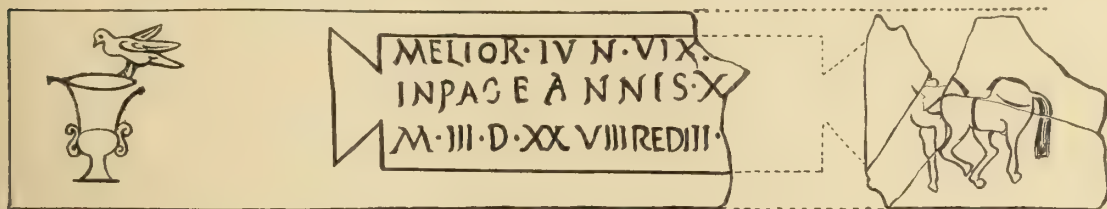 MELIOR·IVN·VIX·
INPACE ANNIS·X
M·III·D·XXVIIIREDIII·